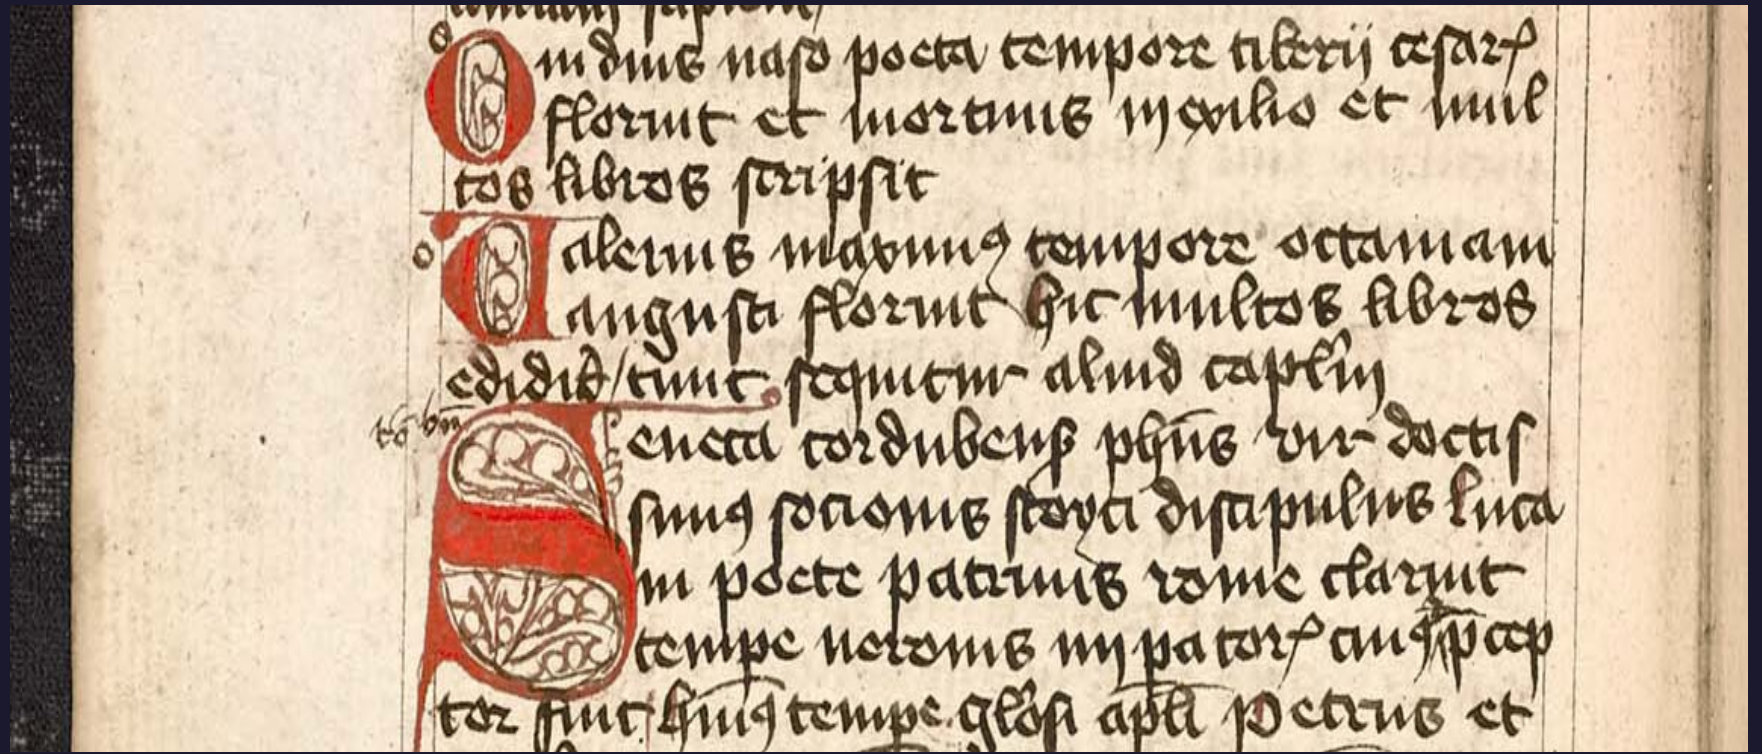 Ouidius naso poeta tempore tiberij cesarꝭ
floruit et mortuus in exilio et mul
tos libros scripsit
Ualerius maximꝰ tempore octauiani
augusti floruit hic multos libros
edidit / tunc sequitur aliud caplm̄
Seneca cordubensꝭ phūs vir doctis
simꝰ socionis stoyci discipulus luca
ni poete patruus rome claruit
tempe neronis impatorꝭ cuiꝰ p̄cep
tor fuit huiꝰ tempe glōsi apl̄i petrus et